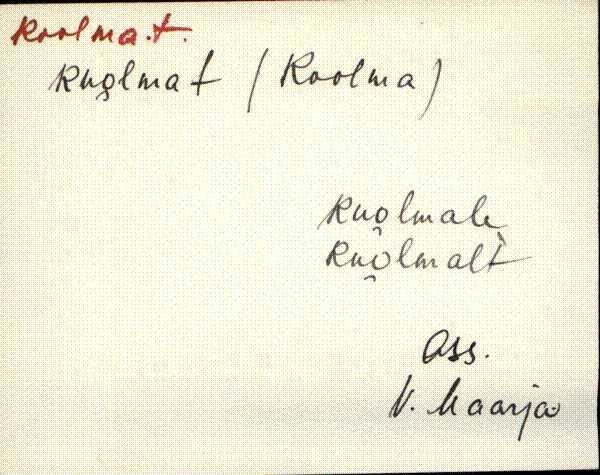 Koolma.t.
Kuo̯lmat (Koolma)
Kuo̯lmale
Kuo̯lmalt
Ass.
V. Maarja